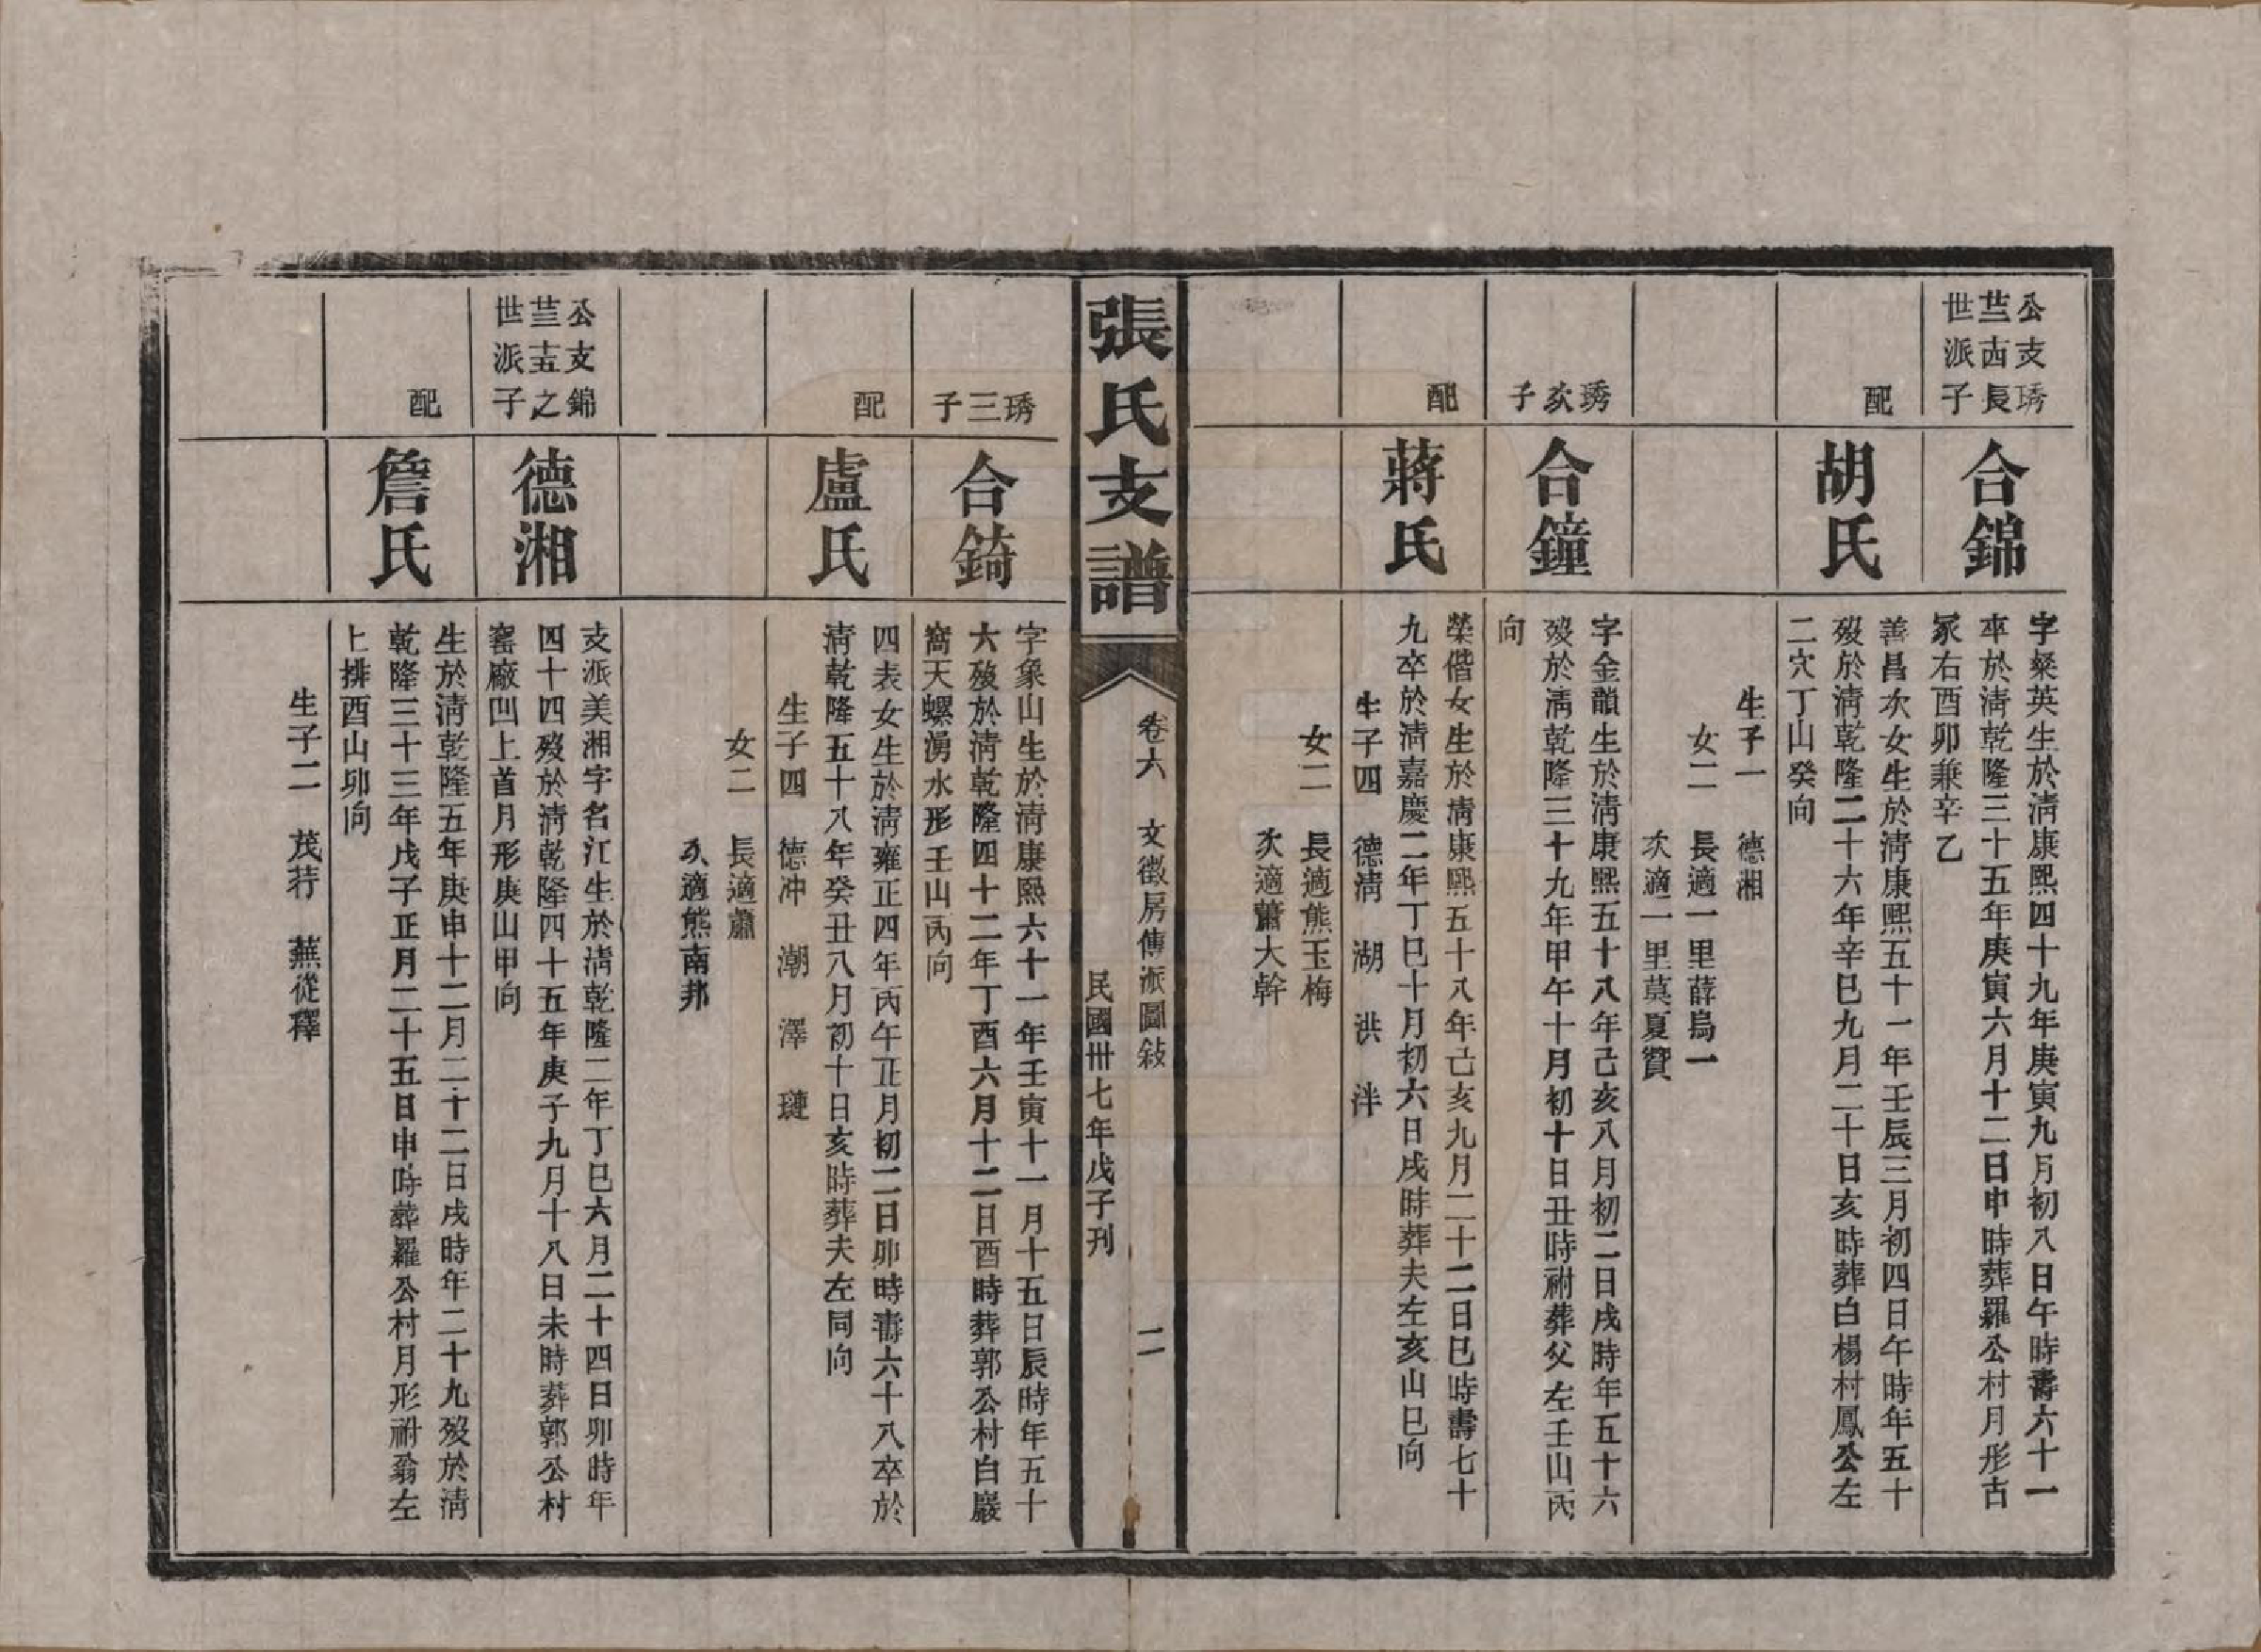 公支琇
廿四長
世派子
合錦
字粲英生於清康熙四十九年庚寅九月初八日午時壽六十一
卒於清乾隆三十五年庚寅六月十二日申時葬羅公村月形古
冢右酉卯兼辛乙
配
胡氏
善昌次女生於清康熙五十一年壬辰三月初四日午時年五十
歿於清乾隆二十六年辛巳九月二十日亥時葬白楊村鳳公左
二穴丁山癸向
生子一 德湘
女二 長適一里薛烏一
次適一里莫夏贊
琇次子
合鐘
字金韻生於清康熙五十八年己亥八月初二日戌時年五十六
歿於清乾隆三十九年甲午十月初十日丑時祔葬父左壬山丙
向
配
蔣氏
榮偕女生於清康熙五十八年己亥九月二十二日巳時壽七十
九卒於清嘉慶二年丁巳十月初六日戌時葬夫左亥山巳向
生子四 德清 湖 洪 泮
女二 長適熊玉梅
次適蕭大幹
張氏支譜
卷六 文徵房傳派圖敍 二
民國卅七年戊子刊
琇三子
合錡
字象山生於清康熙六十一年壬寅十一月十五日辰時年五十
六歿於清乾隆四十二年丁酉六月十二日酉時葬郭公村白巖
窩天螺湧水形壬山丙向
配
盧氏
四表女生於清雍正四年丙午正月初二日卯時壽六十八卒於
清乾隆五十八年癸丑八月初十日亥時葬夫左同向
生子四 德冲 潮 澤 璉
女二 長適蕭
次適熊南邦
公支錦
廿五之
世派子
德湘
支派美湘字名江生於清乾隆二年丁巳六月二十四日卯時年
四十四歿於清乾隆四十五年庚子九月十八日未時葬郭公村
窰廠凹上首月形庚山甲向
配
詹氏
生於清乾隆五年庚申十二月二十二日戌時年二十九歿於清
乾隆三十三年戊子正月二十五日申時葬羅公村月形祔翁左
上排酉山卯向
生子二 茂荇 蕪從釋